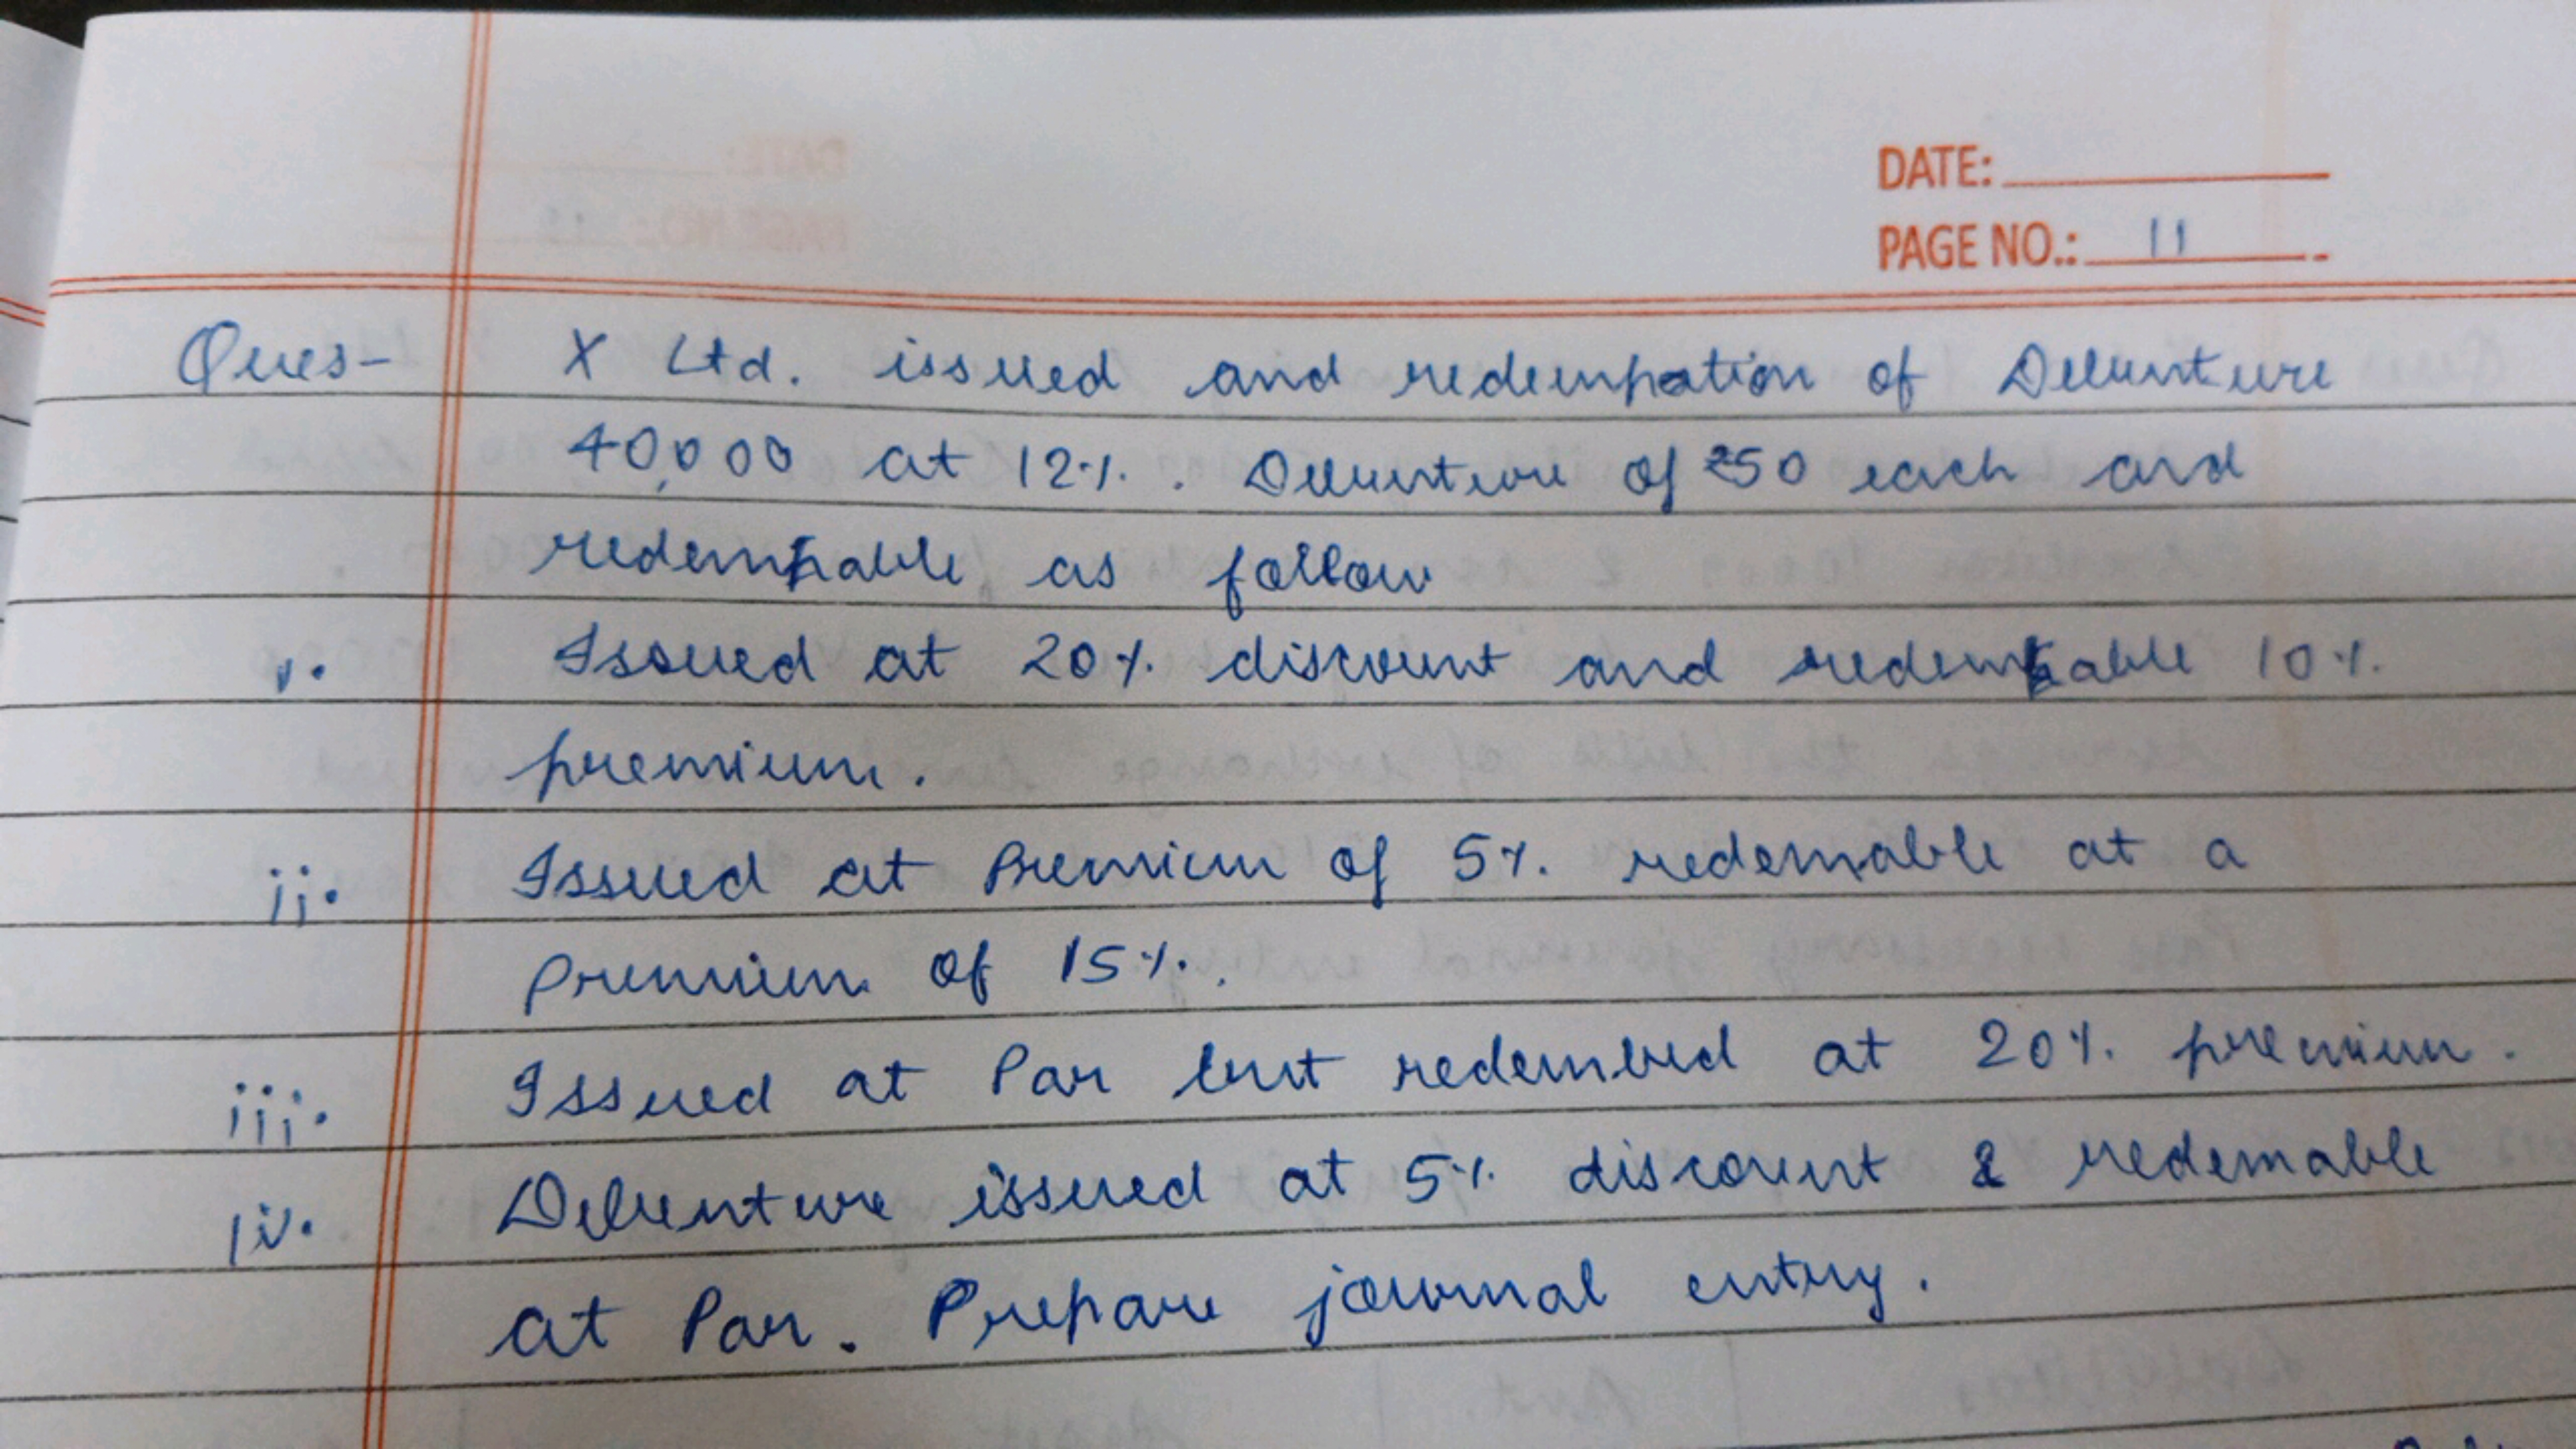 DATE:
PAGE NO.: 11
Ques- X Ltd. issued and redempation of Debenture
40,000 at 12%. Debenture of ₹50 each and
redempable as follow
i. Issued at 20% discount and redemable 10%
premium.
ii. Issued at Premium of 5% redemable at a
premium of 15%.
iii. Issued at Par but redembed at 20% premium.
iv. Debenture issued at 5% discount & redemable
at Par. Prepare journal entry.